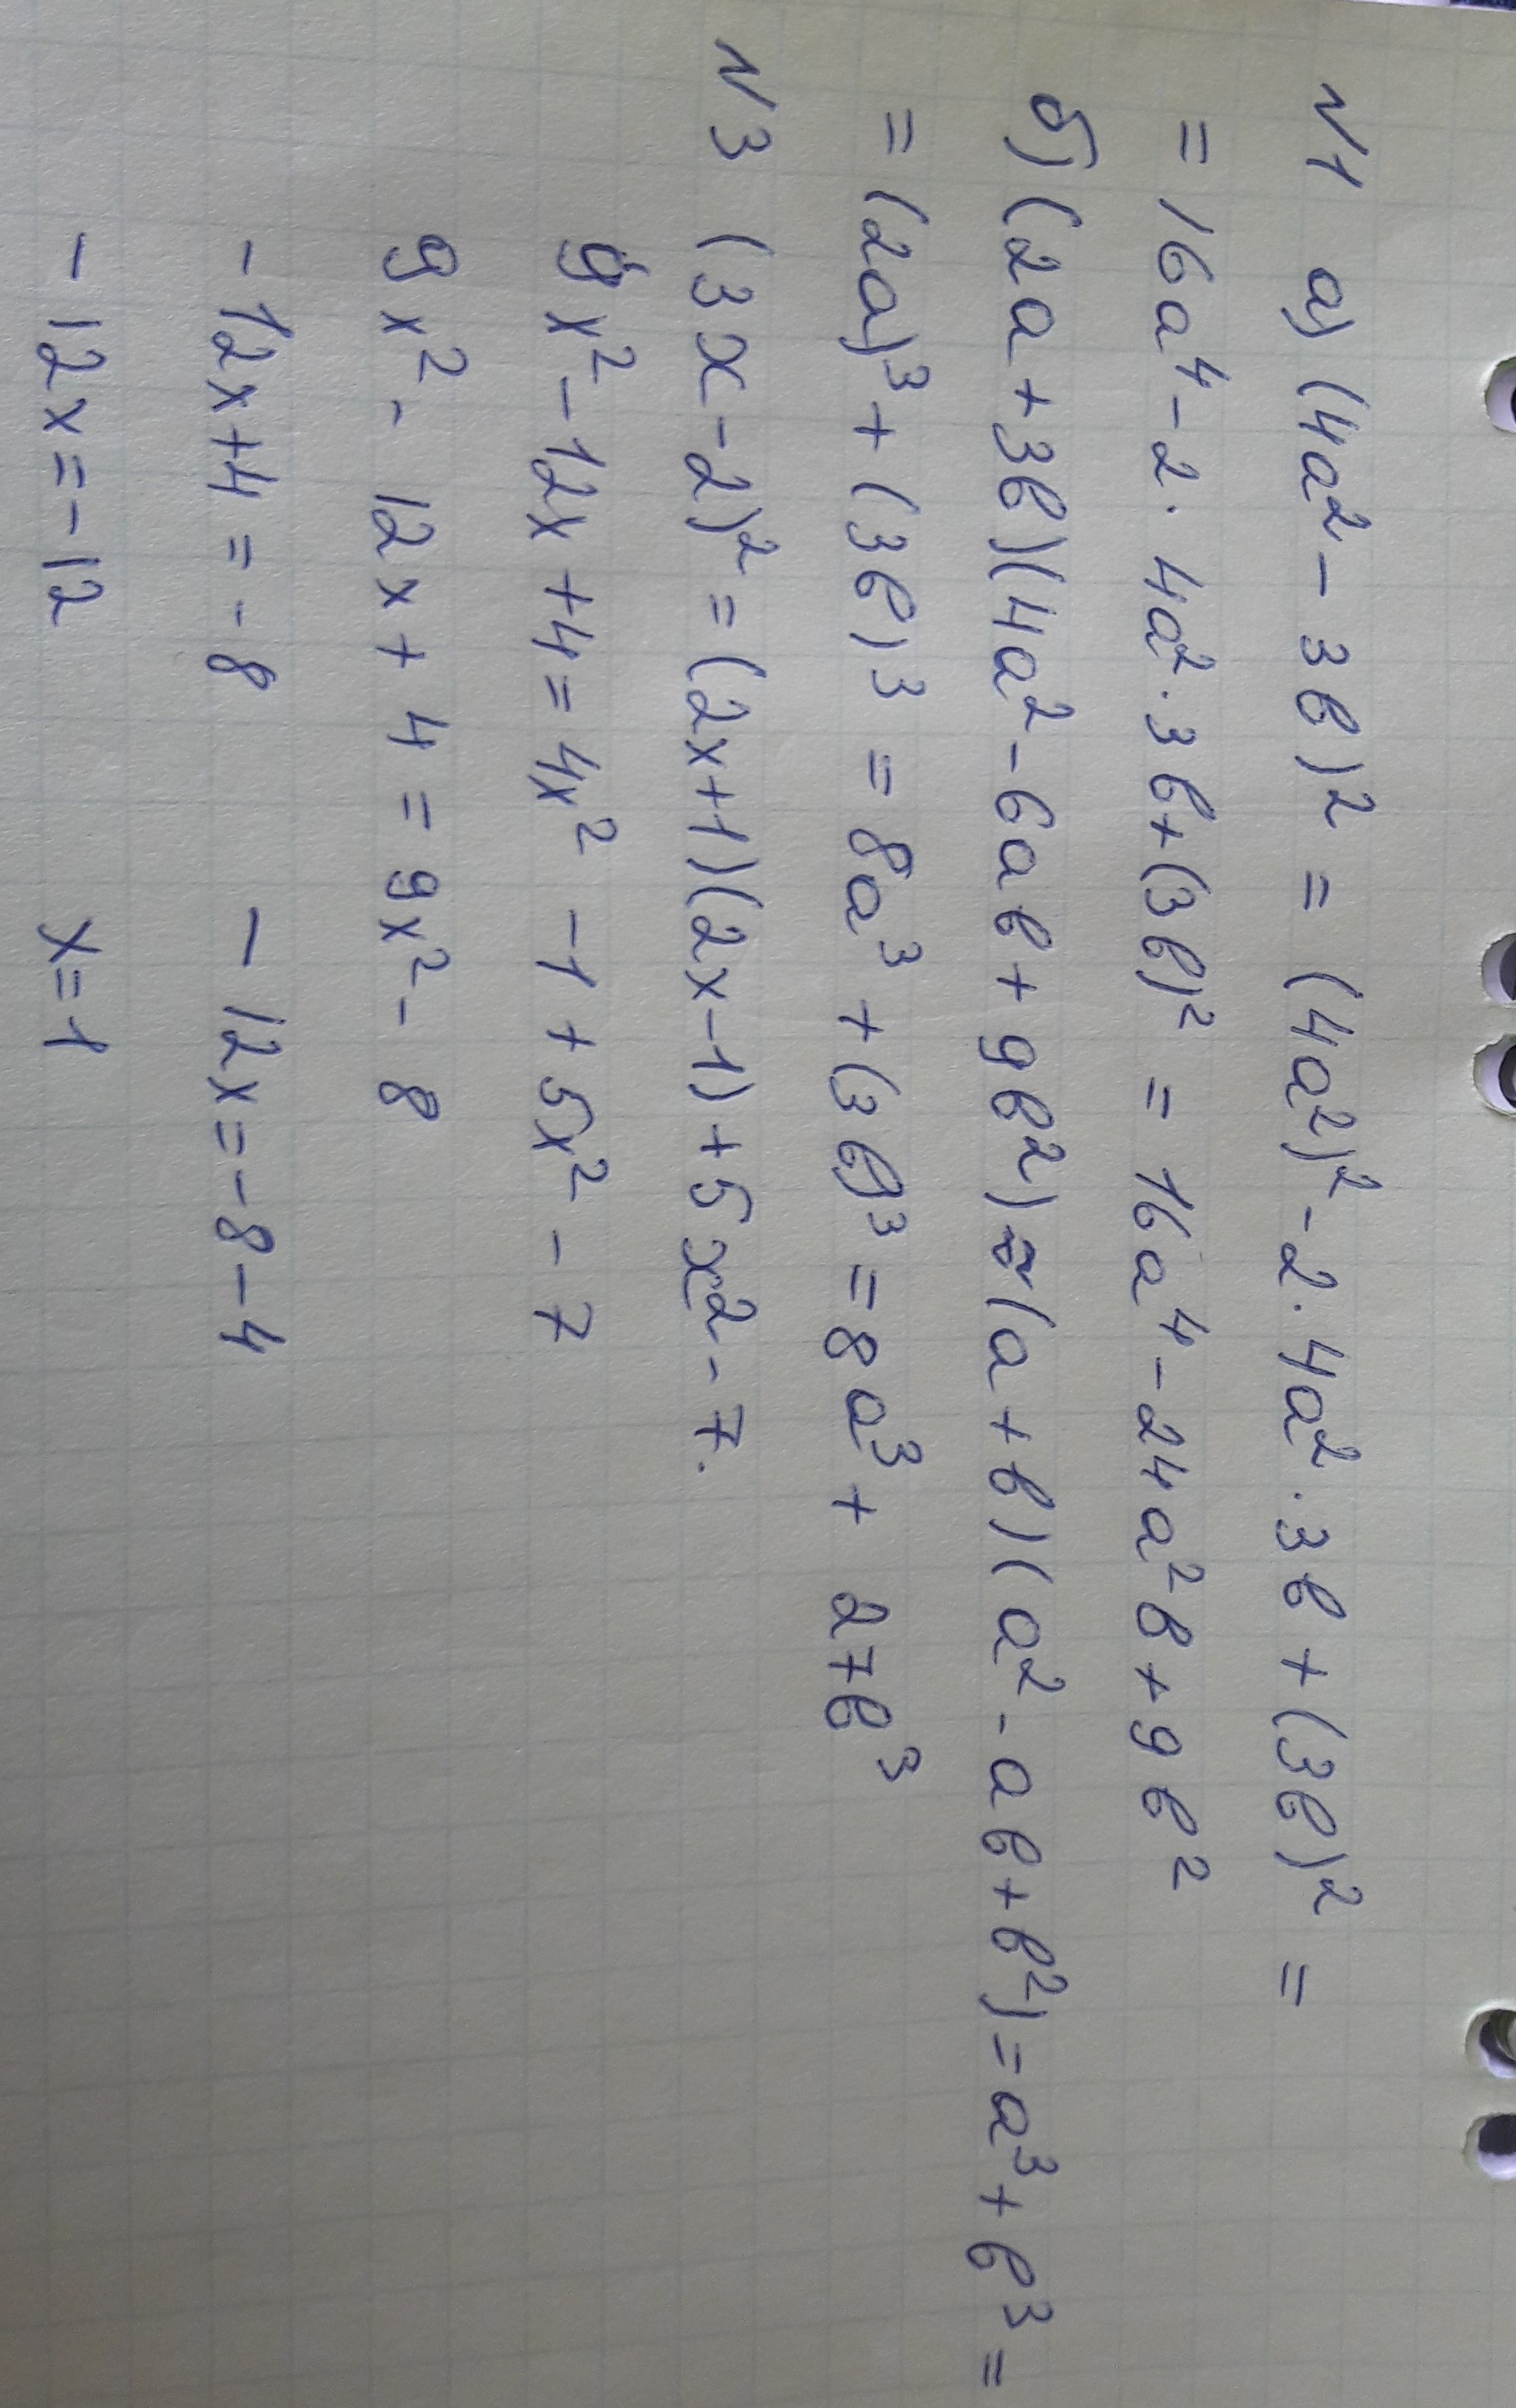 N1 а) (4a² - 3b)² = (4a²)² - 2 · 4a² · 3b + (3b)² =
= 16a⁴ - 2 · 4a² · 3b + (3b)² = 16a⁴ - 24a²b + 9b²
б) (2a + 3b)(4a² - 6ab + 9b²) = (a + b)(a² - ab + b²) = a³ + b³ =
= (2a)³ + (3b)³ = 8a³ + (3b)³ = 8a³ + 27b³
N3 (3x - 2)² = (2x + 1)(2x - 1) + 5x² - 7.
9x² - 12x + 4 = 4x² - 1 + 5x² - 7
9x² - 12x + 4 = 9x² - 8
- 12x + 4 = - 8 - 12x = - 8 - 4
- 12x = - 12 x = 1